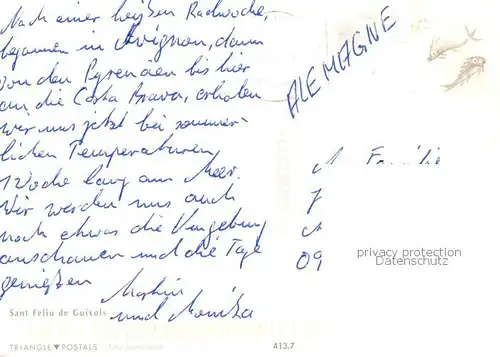 Nach einer heißen Radwoche,
begonnen in Avignon, dann
von den Pyrenäen bis hier
an die Costa Brava, erholen
wir uns jetzt bei sommer-
lichen Temperaturen
1 Woche lang am Meer.
Wir werden uns auch
noch etwas die Umgebung
anschauen und die Tage
genießen
und Monika
ALEMAGNE
Familie
7
09
privacy protection
Datenschutz
Sant Feliu de Guíxols
TRIANGLE ▼ POSTALS
413.7